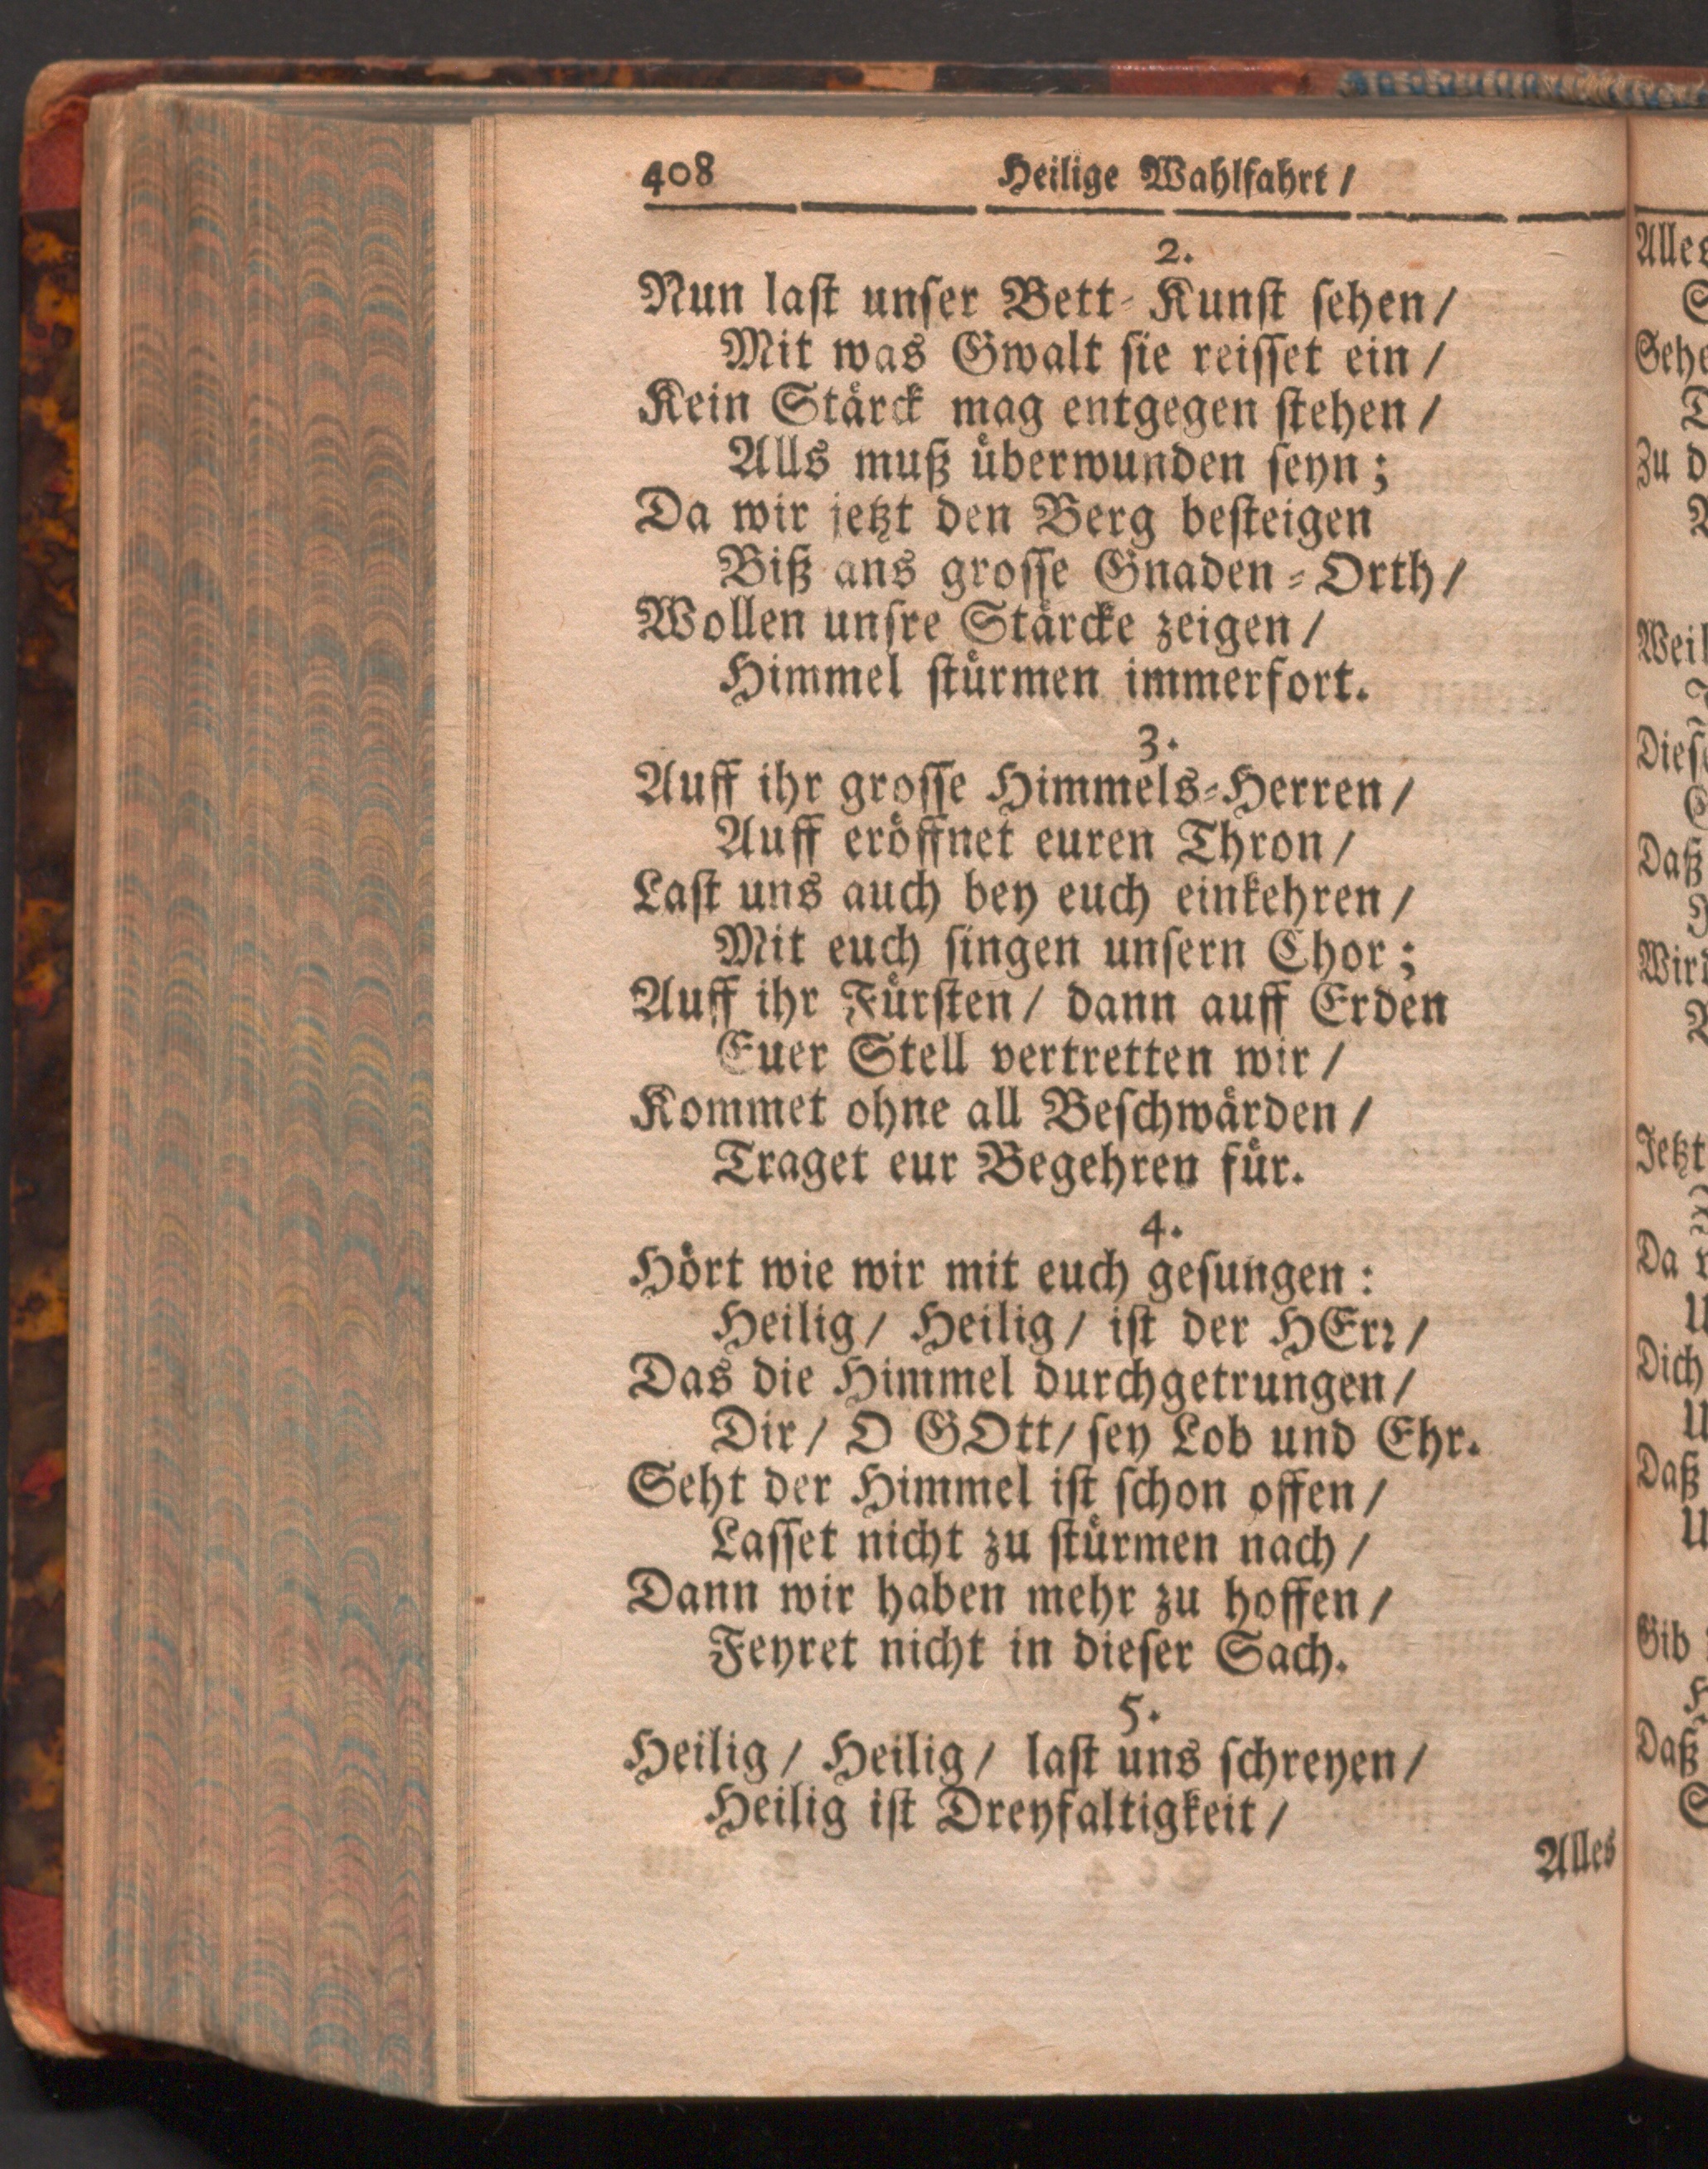 408 Heilige Wahlfahrt /
2.
Nun last unser Bett-Kunst sehen /
Mit was Gwalt sie reisset ein /
Kein Stärck mag entgegen stehen /
Alls muß überwunden seyn;
Da wir jetzt den Berg besteigen
Biß ans grosse Gnaden-Orth /
Wollen unsre Stärcke zeigen /
Himmel stürmen immerfort.
3.
Auff ihr grosse Himmels-Herren /
Auff eröffnet euren Thron /
Last uns auch bey euch einkehren /
Mit euch singen unsern Chor;
Auff ihr Fürsten / dann auff Erden
Euer Stell vertretten wir /
Kommet ohne all Beschwärden /
Traget eur Begehren für.
4.
Hört wie wir mit euch gesungen:
Heilig / Heilig / ist der HErr /
Das die Himmel durchgetrungen /
Dir / O GOtt / sey Lob und Ehr.
Seht der Himmel ist schon offen /
Lasset nicht zu stürmen nach /
Dann wir haben mehr zu hoffen /
Feyret nicht in dieser Sach.
5.
Heilig / Heilig / last uns schreyen /
Heilig ist Dreyfaltigkeit /
Alles
Alles
Zu
Weil
Daß
Jetzt
Da
Dich
Daß
Gib
Daß